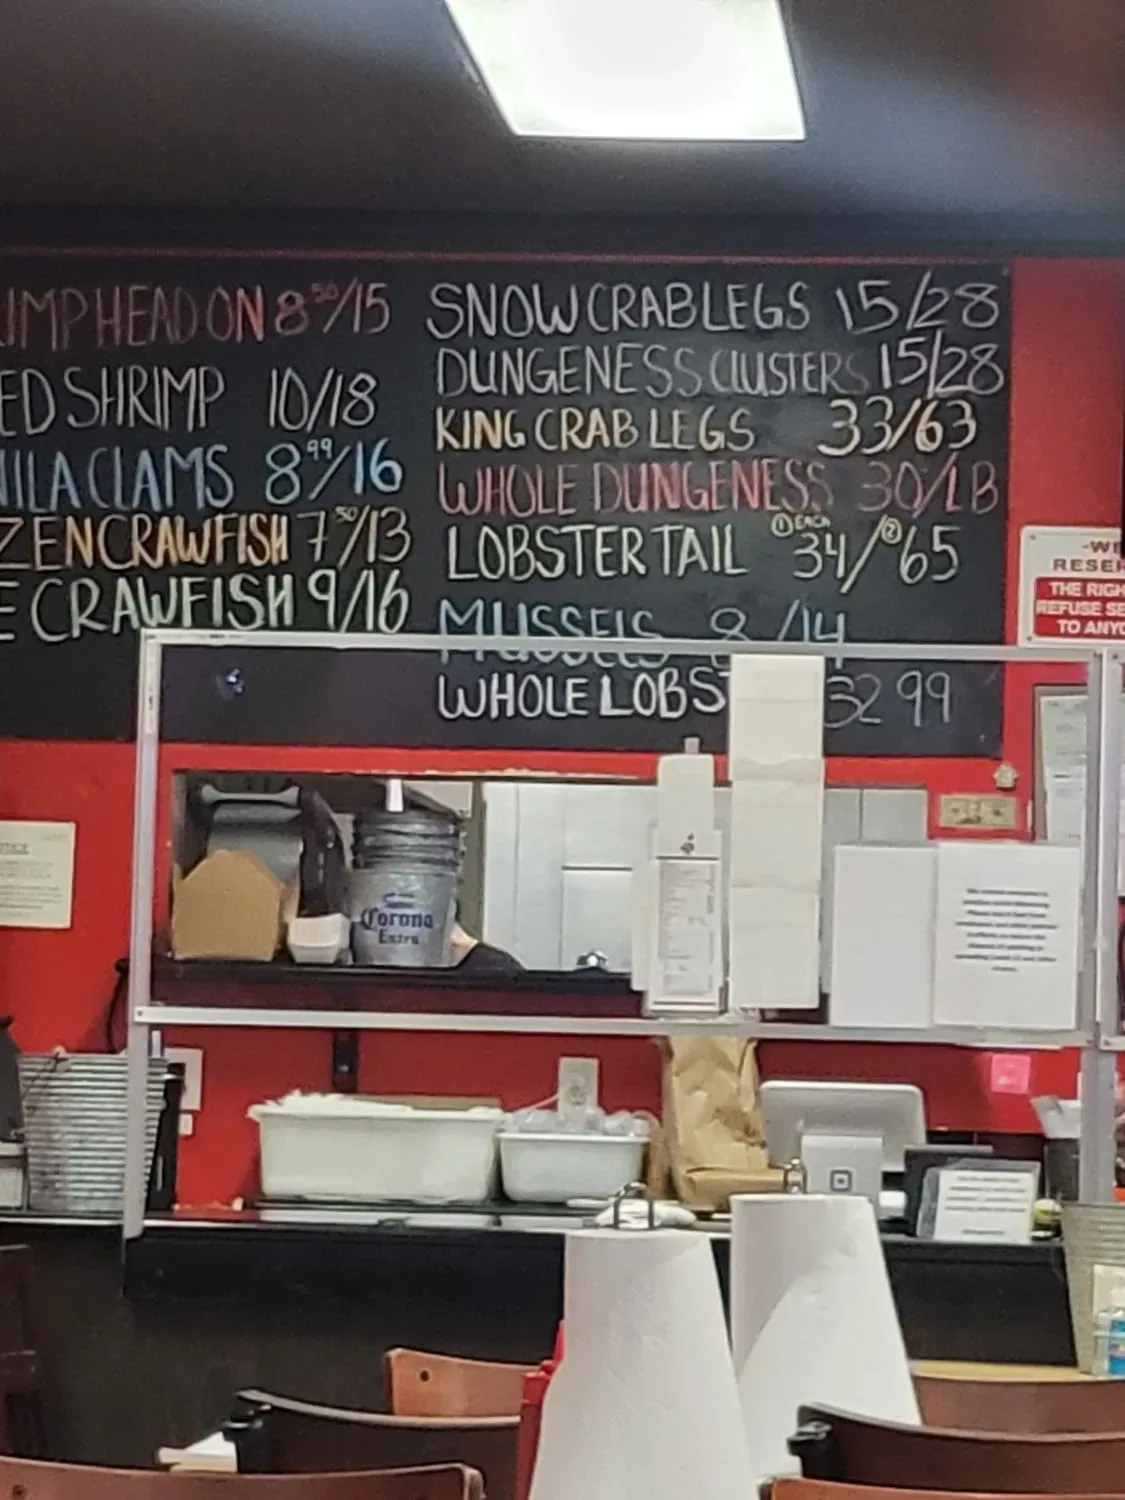 UMP HEAD ON 8 50/15
ED SHRIMP 10/18
NILA CLAMS 8 99/16
ZEN CRAWFISH 7 50/13
E CRAWFISH 9/16
SNOW CRAB LEGS 15/28
DUNGENESS CLUSTERS 15/28
KING CRAB LEGS 33/63
WHOLE DUNGENESS 30/LB
LOBSTER TAIL ① EACH 34/② 65
MUSSELS 8/14
WHOLE LOBST 32 99
-WE
RESER
THE RIGH
REFUSE SE
TO ANYO
Corona
Extra